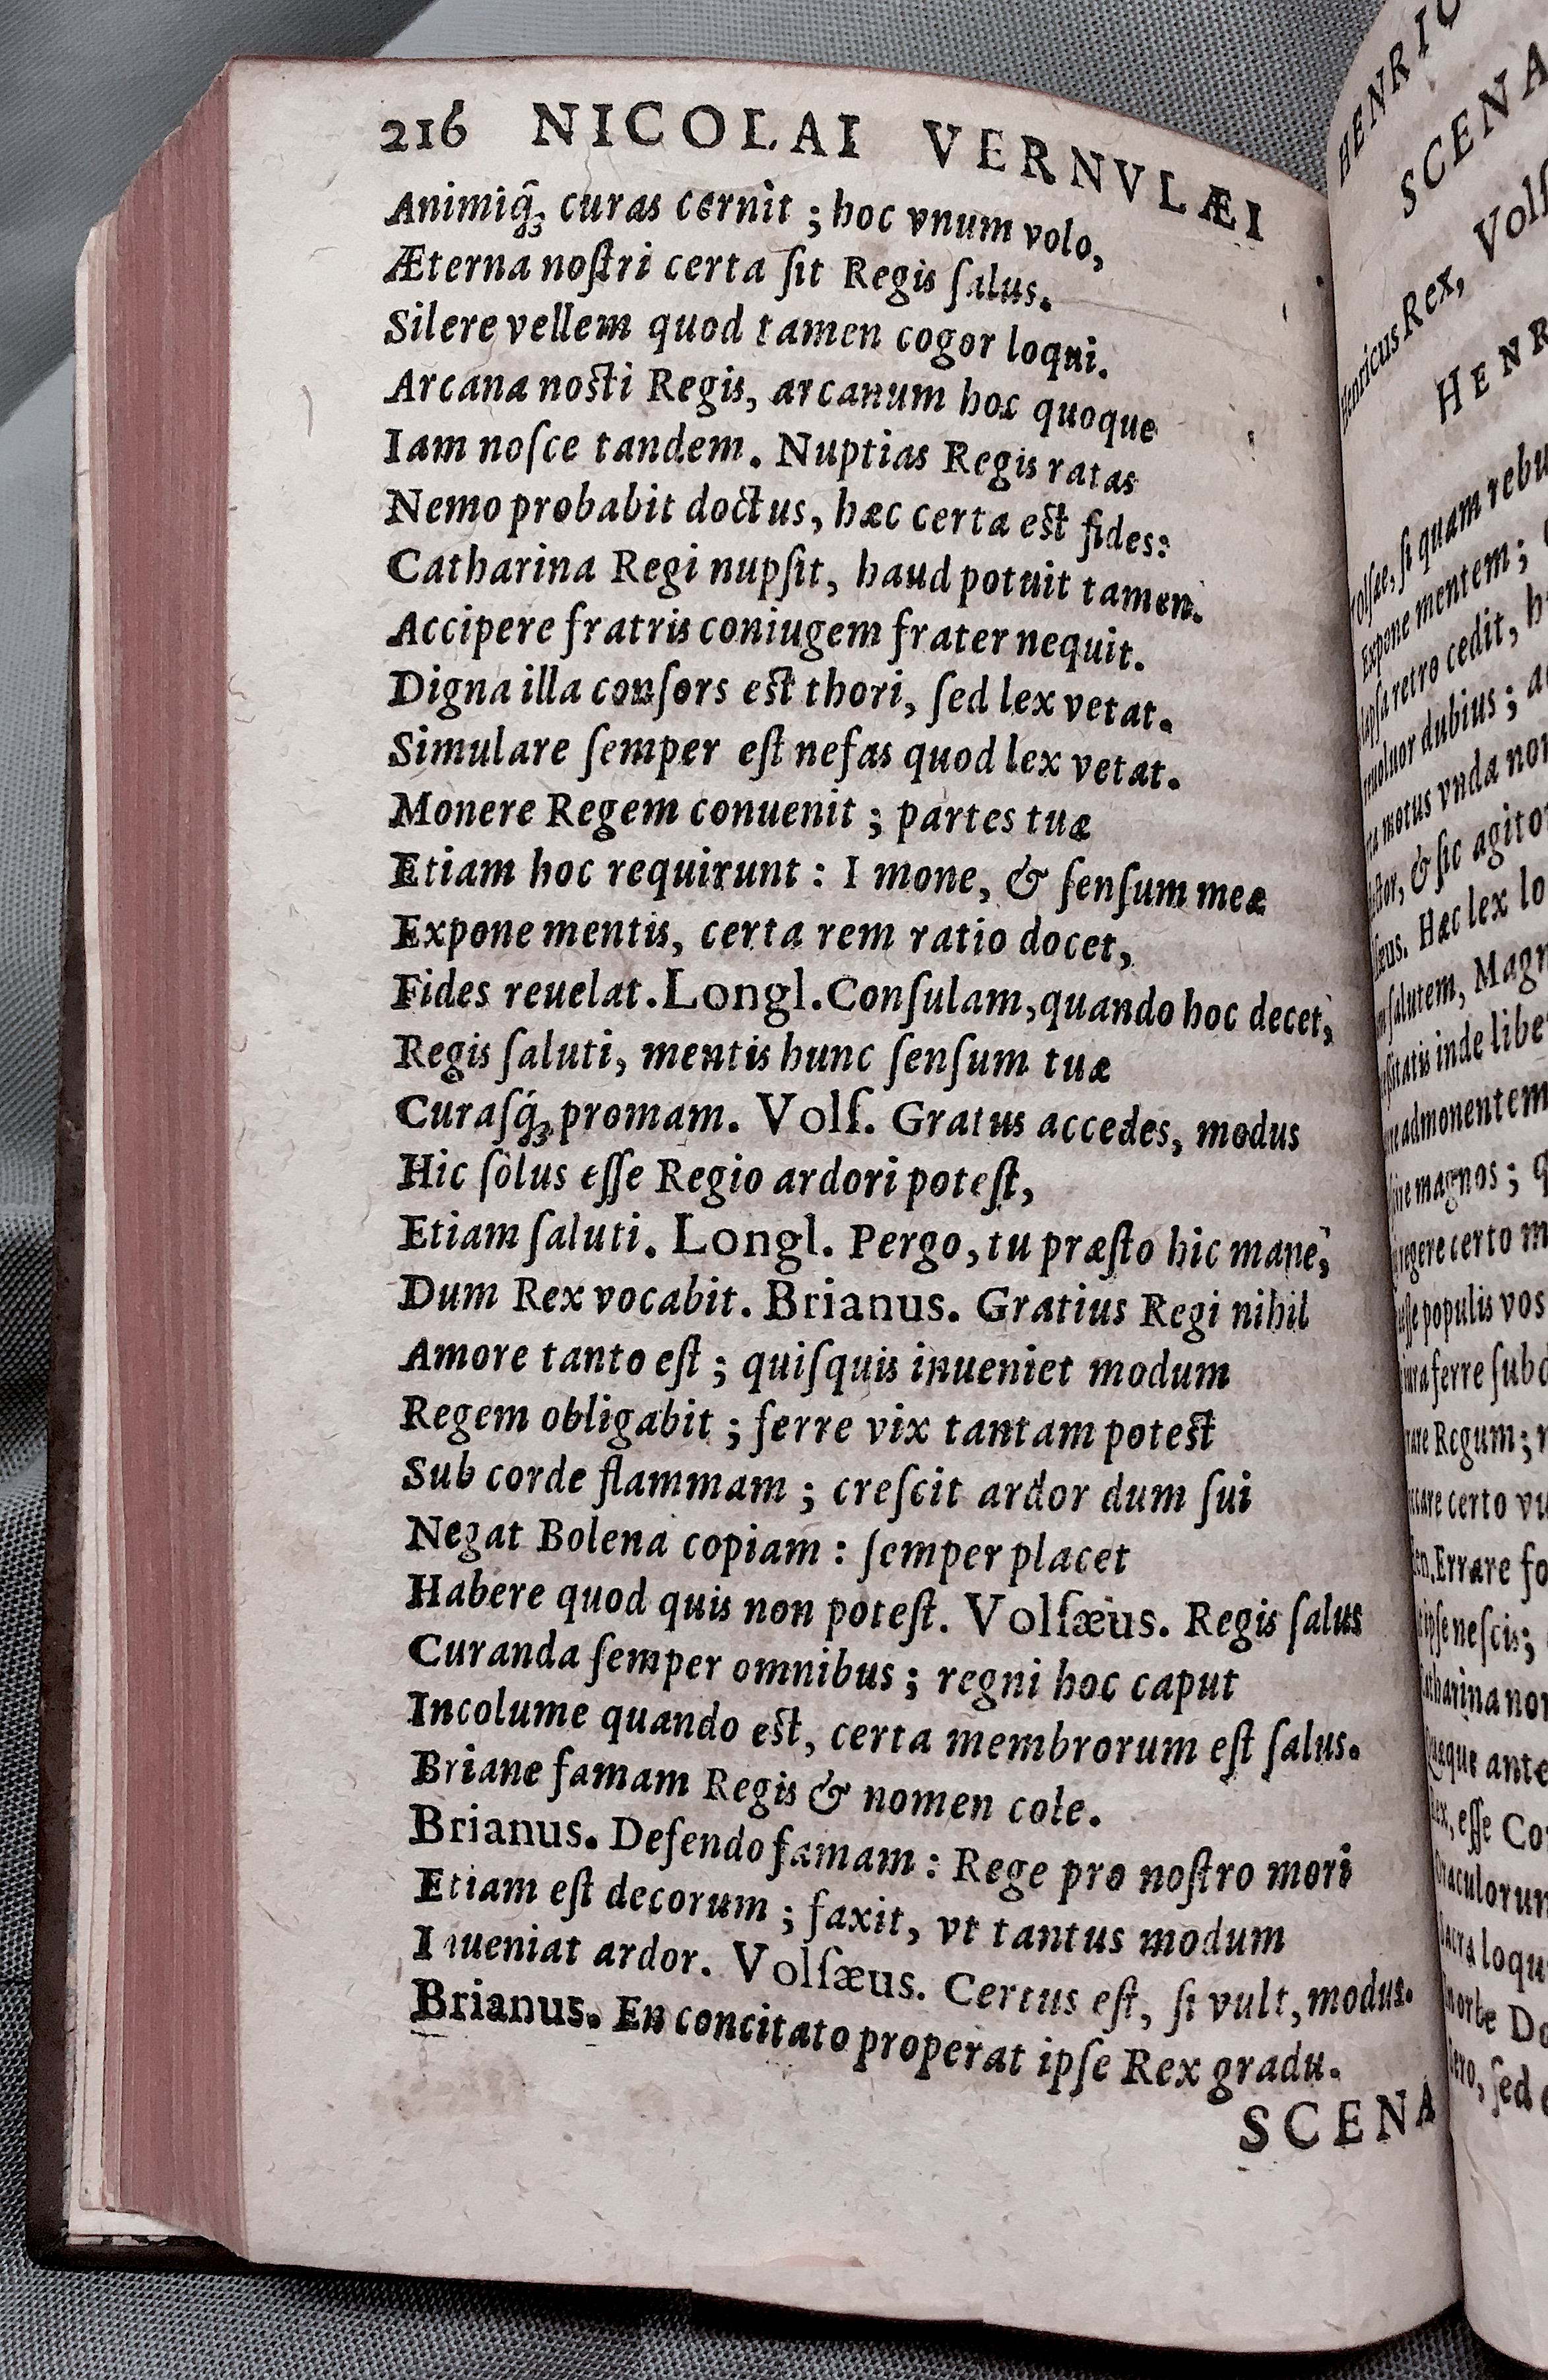 216 NICOLAI VERNVLÆI
Animiq́ꝫ curas cernit ; hoc vnum volo,
Æterna noſtri certa ſit Regis ſalus.
Silere vellem quod tamen cogor loqui.
Arcana noſti Regis, arcanum hoc quoque
Iam noſce tandem. Nuptias Regis ratas
Nemo probabit doctus, hæc certa eſt fides:
Catharina Regi nupſit, haud potuit tamen.
Accipere fratris coniugem frater nequit.
Digna illa conſors eſt thori, ſed lex vetat.
Simulare ſemper eſt nefas quod lex vetat.
Monere Regem conuenit ; partes tuæ
Etiam hoc requirunt : I mone, & ſenſum meæ
Expone mentis, certa rem ratio docet,
Fides reuelat. Longl. Conſulam, quando hoc decet,
Regis ſaluti, mentis hunc ſenſum tuæ
Curaſq́ꝫ promam. Volſ. Gratus accedes, modus
Hic ſolus eſſe Regio ardori poteſt,
Etiam ſaluti. Longl. Pergo, tu præſto hic mane,
Dum Rex vocabit. Brianus. Gratius Regi nihil
Amore tanto eſt ; quiſquis inueniet modum
Regem obligabit ; ferre vix tantam poteſt
Sub corde flammam ; creſcit ardor dum ſui
Negat Bolena copiam : ſemper placet
Habere quod quis non poteſt. Volſæus. Regis ſalus
Curanda ſemper omnibus ; regni hoc caput
Incolume quando eſt, certa membrorum eſt ſalus.
Briane famam Regis & nomen cole.
Brianus. Defendo famam : Rege pro noſtro mori
Etiam eſt decorum ; faxit, vt tantus modum
Inueniat ardor. Volſæus. Certus eſt, ſi vult, modus.
Brianus. En concitato properat ipſe Rex gradu.
SCENA
HENRIC
SCENA
Henricus Rex, Volſ
HENR
ſi quam rebu
Expone mentem ;
retro cedit, h
dubius ;
motus vnda non
& ſic agitor
Hæc lex lo
ſalutem, Magn
inde libe
admonentem
magnos ; q
regere certo m
populis vos
ferre ſub
Regum ;
certo vu
Errare fo
ipſe neſcis ;
ante
eſſe Co
loqu
Do
ſed